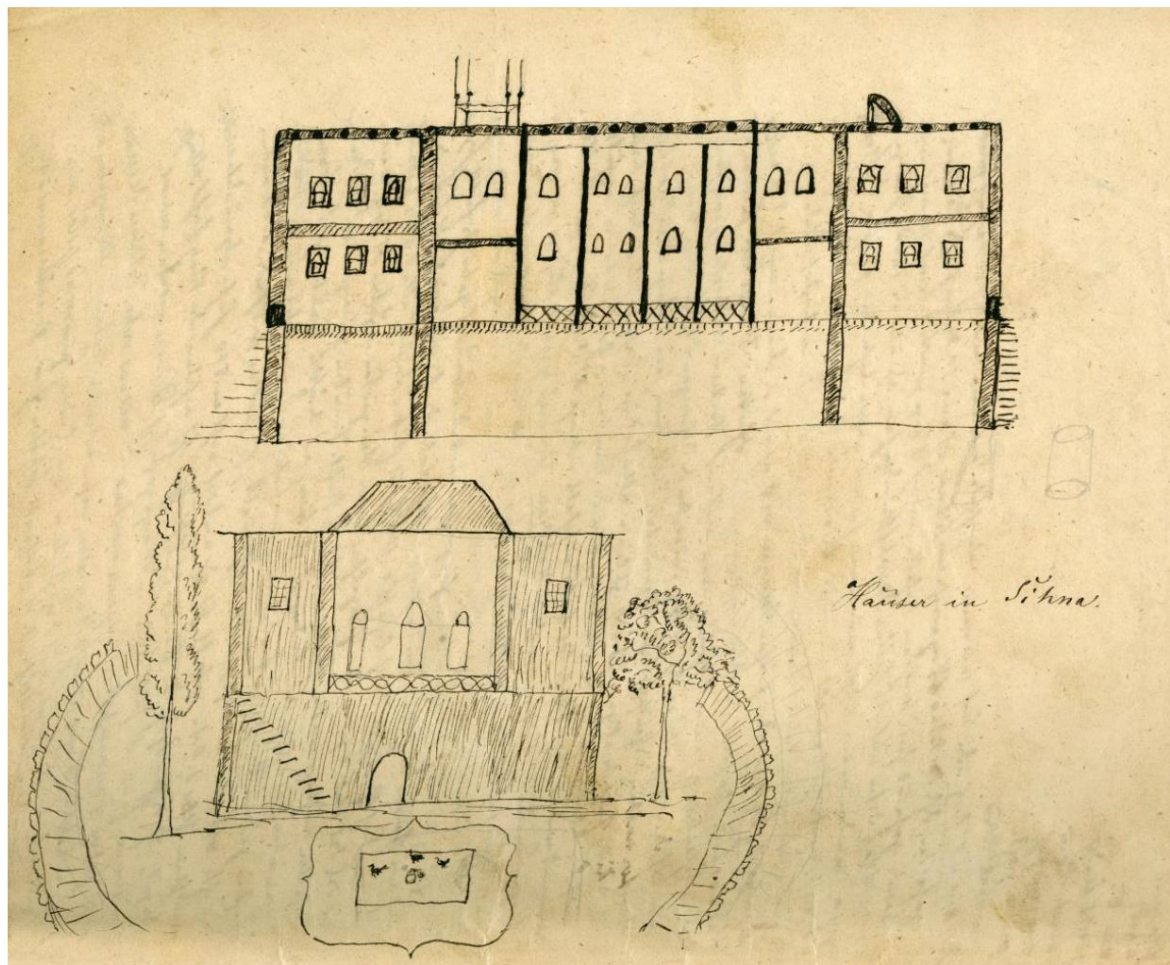 Häuser in Sihna.